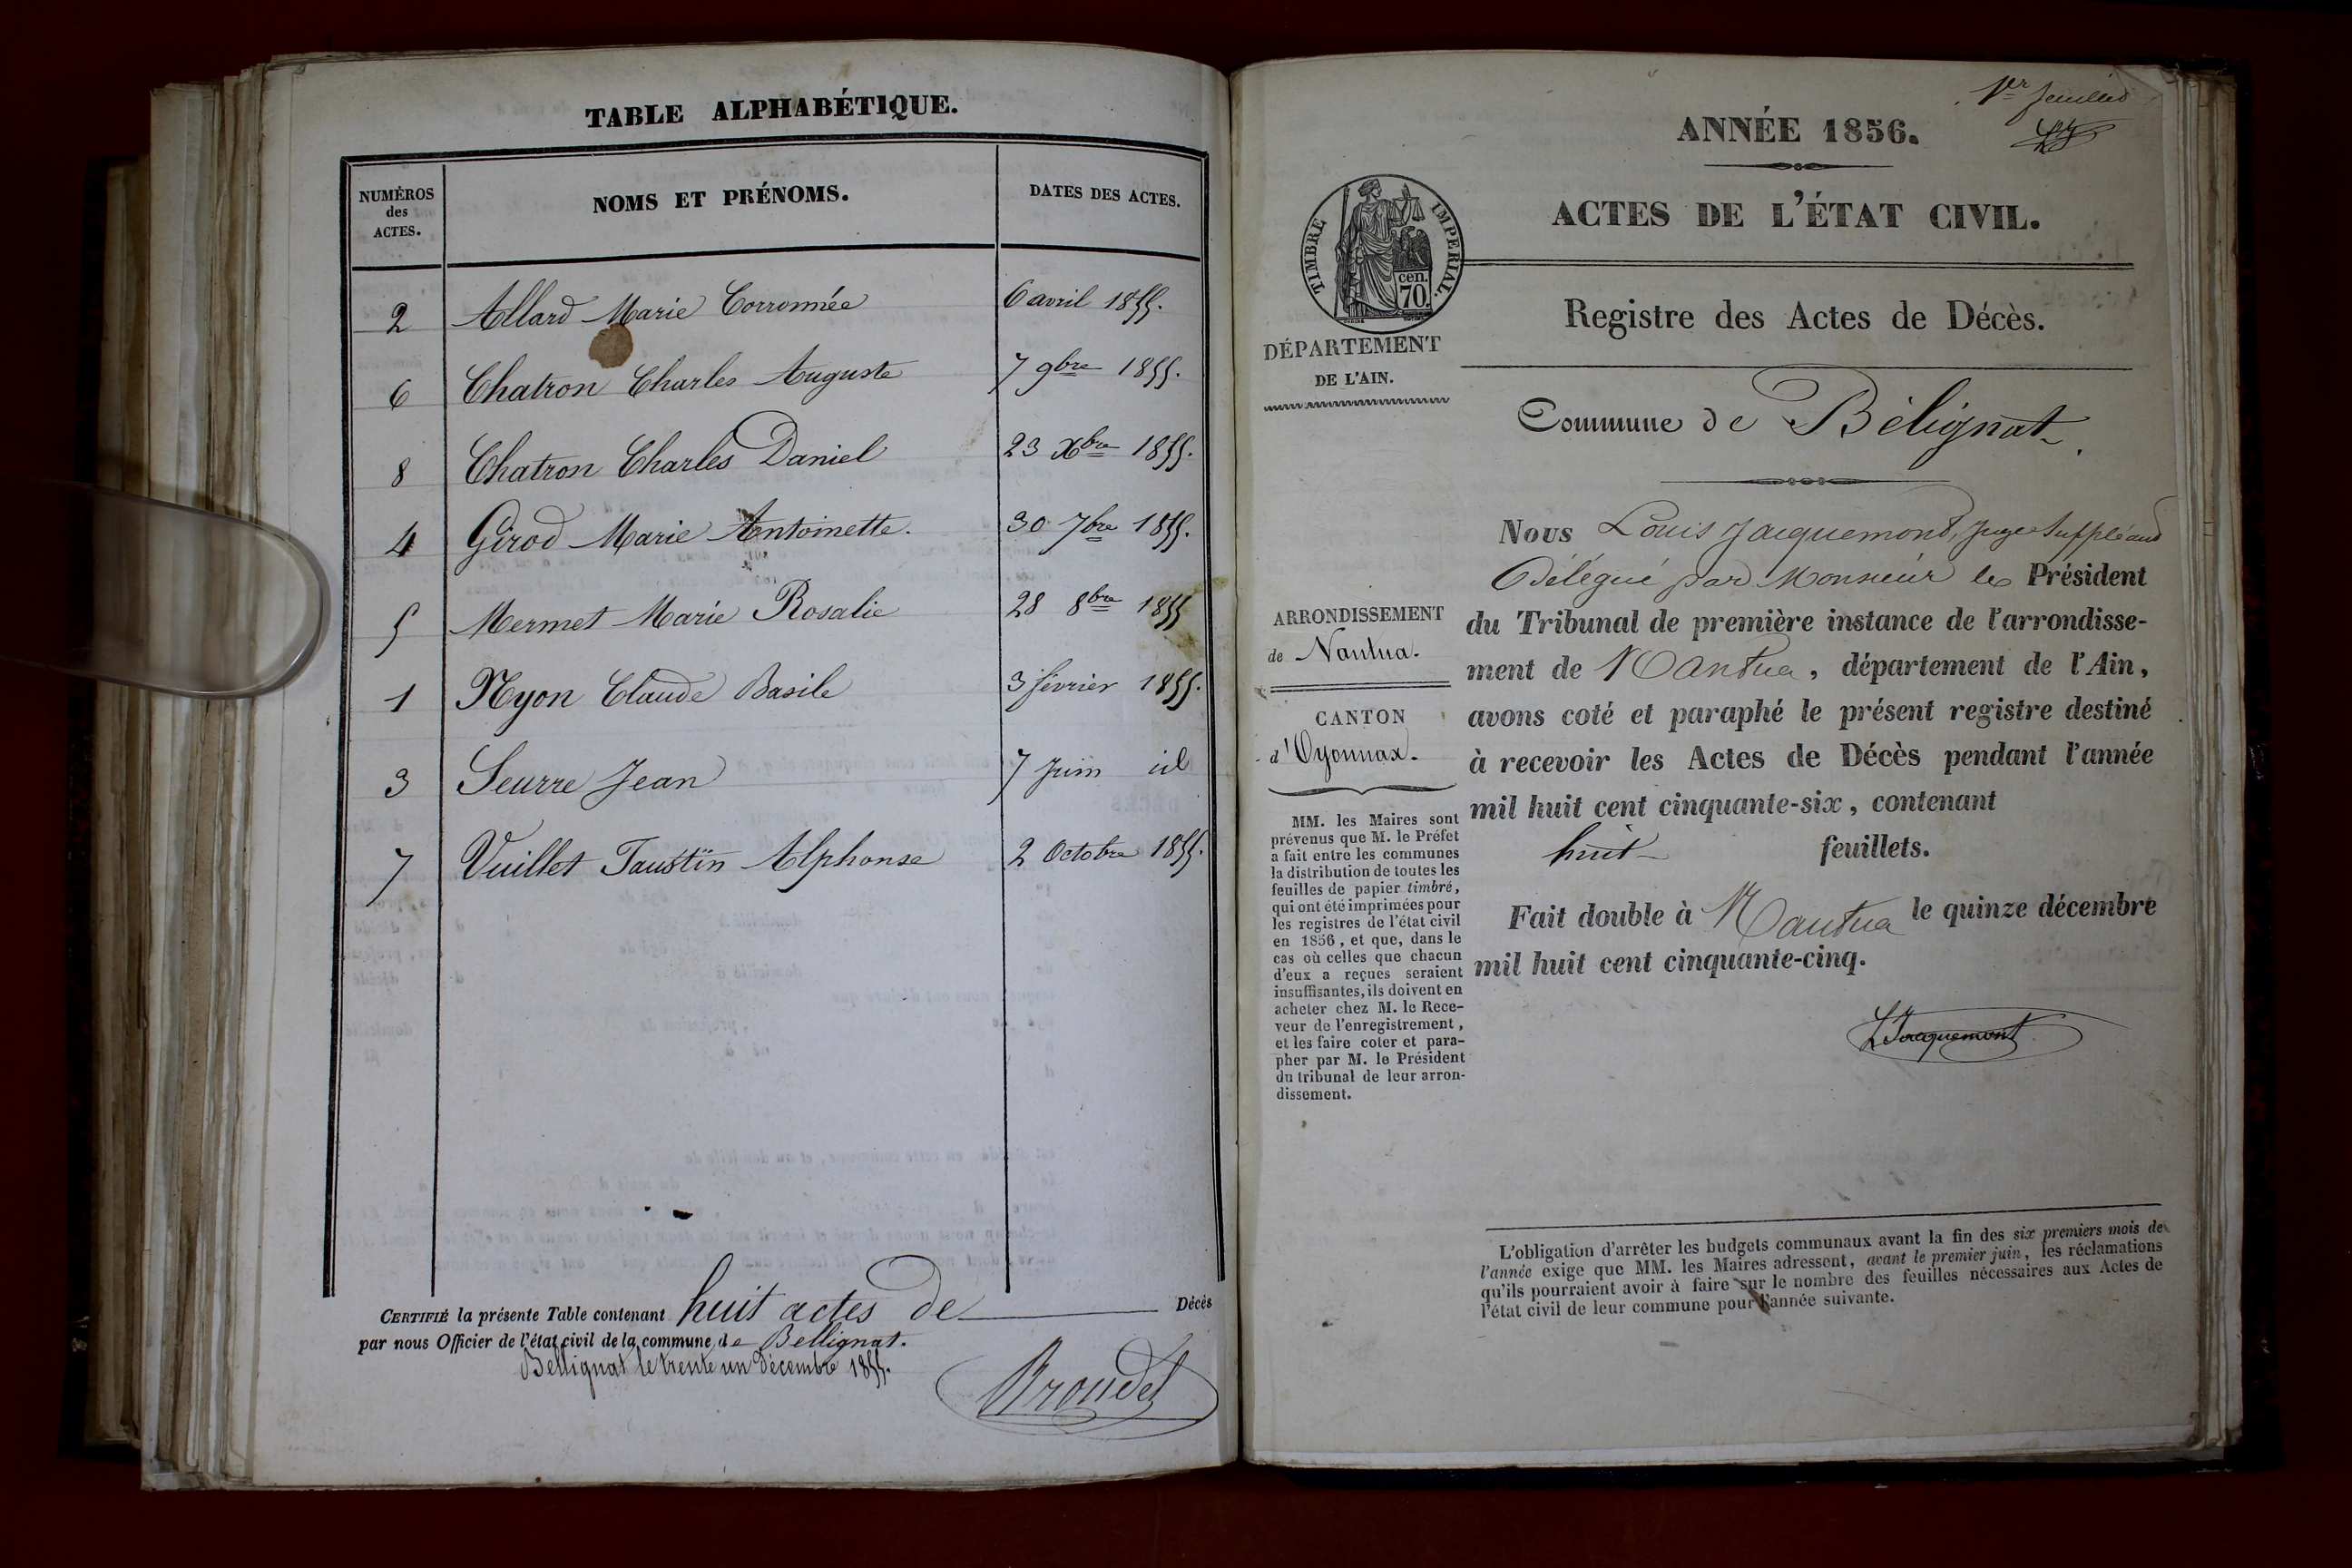 TABLE ALPHABÉTIQUE.
NUMÉROS des ACTES.
NOMS ET PRÉNOMS.
DATES DES ACTES.
2 Allard Marie Corronnée 6 avril 1855.
6 Chatron Charles Auguste 7 9bre 1855.
8 Chatron Charles Daniel 23 Xbre 1855.
4 Girod Marie Antoinette. 30 7bre 1855.
5 Mermet Marie Rosalie 28 8bre 1855
1 Nyon Claude Basile 3 février 1855.
3 Seurre Jean 7 Juin id
7 Vuillet Faustin Alphonse 2 Octobre 1855.
CERTIFIÉ la présente Table contenant huit actes de Décès
par nous Officier de l'état civil de la commune de Bellignat.
Bellignat le trente un Décembre 1855.
1er feuillet
ANNÉE 1856.
ACTES DE L'ÉTAT CIVIL.
TIMBRE IMPERIAL.
cen.
70.
Registre des Actes de Décès.
DÉPARTEMENT
DE L'AIN.
Commune de Bélignat.
ARRONDISSEMENT
de Nantua.
CANTON
d'Oyonnax.
MM. les Maires sont
prévenus que M. le Préfet
a fait entre les communes
la distribution de toutes les
feuilles de papier timbré,
qui ont été imprimées pour
les registres de l'état civil
en 1856, et que, dans le
cas où celles que chacun
d'eux a reçues seraient
insuffisantes, ils doivent en
acheter chez M. le Rece-
veur de l'enregistrement,
et les faire coter et para-
pher par M. le Président
du tribunal de leur arron-
dissement.
Nous Louis Jacquemont, Juge Suppléant
Délégué par Monsieur le Président
du Tribunal de première instance de l'arrondisse-
ment de Nantua, département de l'Ain,
avons coté et paraphé le présent registre destiné
à recevoir les Actes de Décès pendant l'année
mil huit cent cinquante-six, contenant
huit feuillets.
Fait double à Nantua le quinze décembre
mil huit cent cinquante-cinq.
L Jacquemont
L'obligation d'arrêter les budgets communaux avant la fin des six premiers mois de
l'année exige que MM. les Maires adressent, avant le premier juin, les réclamations
qu'ils pourraient avoir à faire sur le nombre des feuilles nécessaires aux Actes de
l'état civil de leur commune pour l'année suivante.